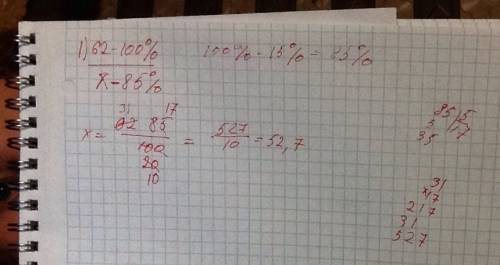 1) 62-100% 100%-15%=85%
x-85%
31 17
x = 62 85 / 100 = 527/10 = 52,7
20
10
85 | 5
5 | 17
35
31
x17
217
31
527